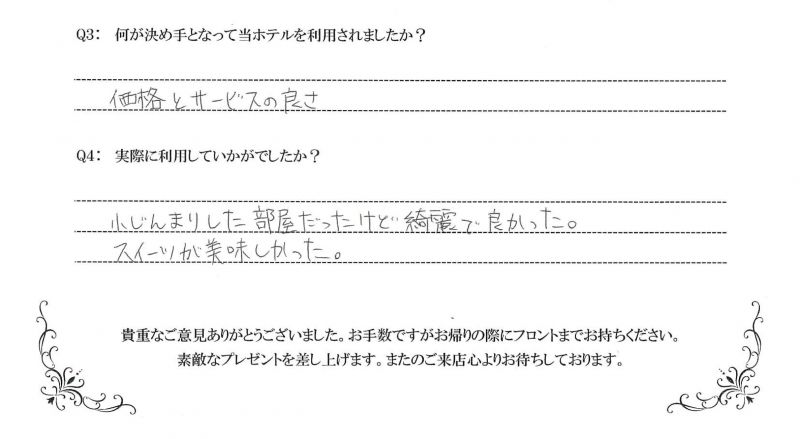 Q3: 何が決め手となって当ホテルを利用されましたか？
価格とサービスの良さ
Q4: 実際に利用していかがでしたか？
小じんまりした部屋だったけど綺麗で良かった。
スイーツが美味しかった。
貴重なご意見ありがとうございました。お手数ですがお帰りの際にフロントまでお持ちください。
素敵なプレゼントを差し上げます。またのご来店心よりお待ちしております。